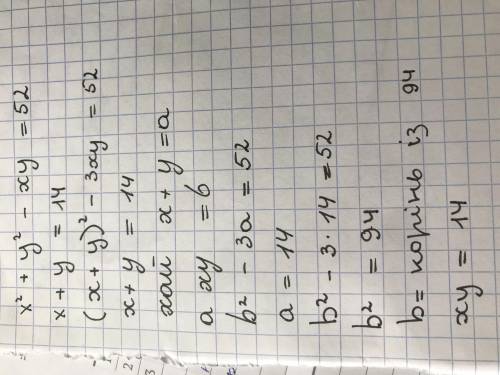 x² + y² - xy = 52
x + y = 14
(x + y)² - 3xy = 52
x + y = 14
хай x + y = a
a xy = b
b² - 3a = 52
a = 14
b² - 3·14 = 52
b² = 94
b = корінь із 94
xy = 14